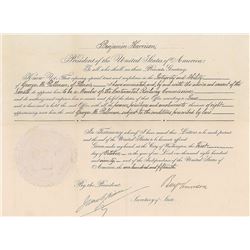 Benjamin Harrison,
President of the United States of America;
To all who shall see these Presents, Greeting:
Know Ye; That reposing special trust and confidence in the Integrity and Ability
of George M. Pullman, of Illinois, I have nominated and by and with the advice and consent of the
Senate do appoint him to be a Member of the Continental Railway Commission
and do authorize and empower him to execute and fulfil the duties of that Office according to law
and to have and to hold the said Office, with all the powers, privileges and emoluments thereunto of right
appertaining unto him the said George M. Pullman, subject to the conditions prescribed by law.
In Testimony whereof, I have caused these Letters to be made patent
and the Seal of the United States to be hereunto affixed.
Given under my hand, at the City of Washington, the first
day of October, in the year of our Lord one thousand eight hundred
and ninety, and of the Independence of the United States
of America, the one hundred and fifteenth.
By the President:
Benj Harrison
Secretary of State.